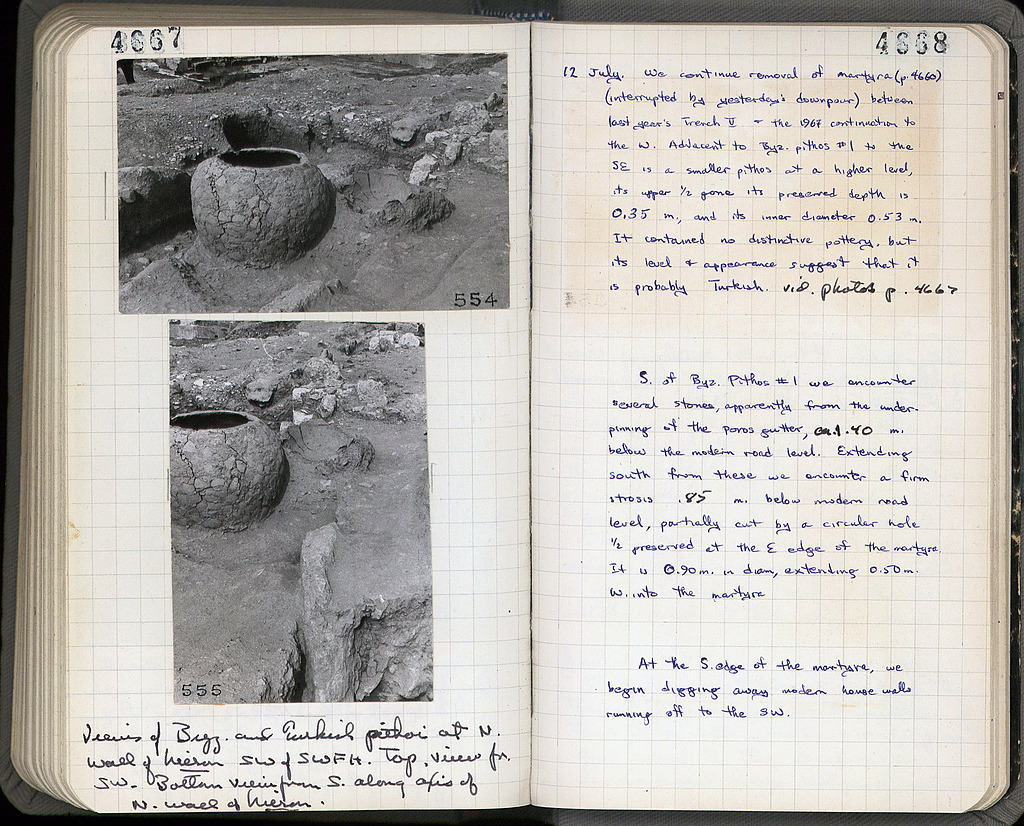 4667
554
555
Views of Byz. and Turkish pithoi at N.
wall of hieron SW of SWFH. Top, view fr.
SW. Bottom view from S. along axis of
N. wall of hieron.
4668
12 July. We continue removal of martyra (p. 4660)
(interrupted by yesterday's downpour) between
last year's Trench V + the 1967 continuation to
the W. Adjacent to Byz. pithos #1 to the
SE is a smaller pithos at a higher level,
its upper ½ gone its preserved depth is
0.35 m, and its inner diameter 0.53 m.
It contained no distinctive pottery, but
its level + appearance suggest that it
is probably Turkish. vid. photos p. 4667
S. of Byz. Pithos #1 we encounter
several stones, apparently from the under-
pinning of the poros gutter, ca 1.40 m.
below the modern road level. Extending
south from these we encounter a firm
strosis .85 m. below modern road
level, partially cut by a circular hole
½ preserved at the E edge of the martyra.
It is 0.90 m. in diam, extending 0.50 m.
W. into the martyra
At the S. edge of the martyra, we
begin digging away modern house walls
running off to the SW.